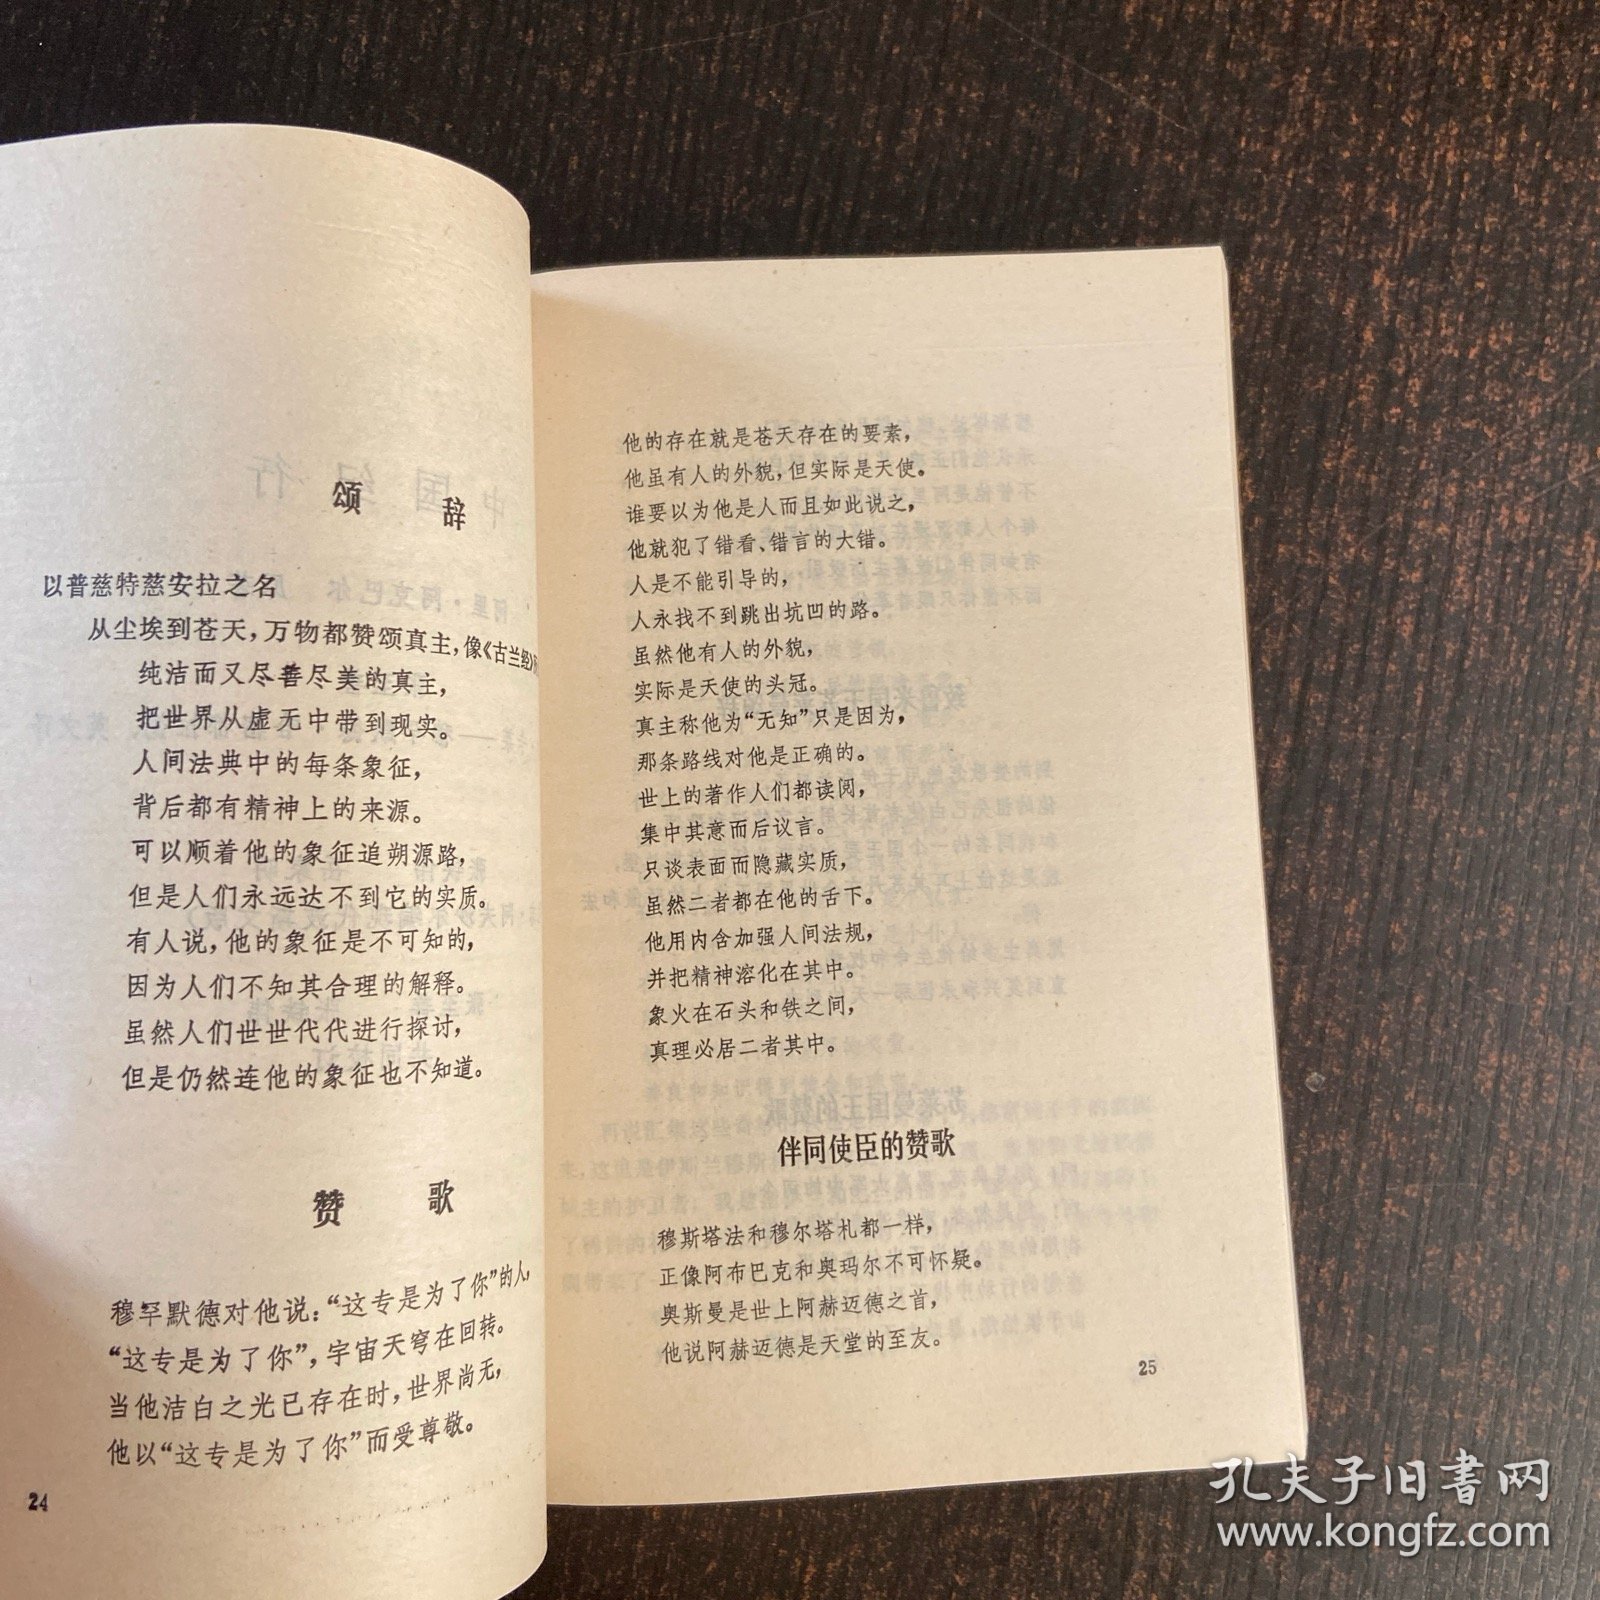 颂 辞
以普慈特慈安拉之名
从尘埃到苍天，万物都赞颂真主，像《古兰经》
纯洁而又尽善尽美的真主，
把世界从虚无中带到现实。
人间法典中的每条象征，
背后都有精神上的来源。
可以顺着他的象征追朔源路，
但是人们永远达不到它的实质。
有人说，他的象征是不可知的，
因为人们不知其合理的解释。
虽然人们世世代代进行探讨，
但是仍然连他的象征也不知道。
赞 歌
穆罕默德对他说：“这专是为了你”的人，
“这专是为了你”，宇宙天穹在回转。
当他洁白之光已存在时，世界尚无，
他以“这专是为了你”而受尊敬。
24
他的存在就是苍天存在的要素，
他虽有人的外貌，但实际是天使。
谁要以为他是人而且如此说之，
他就犯了错看、错言的大错。
人是不能引导的，
人永找不到跳出坑凹的路。
虽然他有人的外貌，
实际是天使的头冠。
真主称他为“无知”只是因为，
那条路线对他是正确的。
世上的著作人们都读阅，
集中其意而后议言。
只谈表面而隐藏实质，
虽然二者都在他的舌下。
他用内含加强人间法规，
并把精神溶化在其中。
象火在石头和铁之间，
真理必居二者其中。
伴同使臣的赞歌
穆斯塔法和穆尔塔札都一样，
正像阿布巴克和奥玛尔不可怀疑。
奥斯曼是世上阿赫迈德之首，
他说阿赫迈德是天堂的至友。
25
孔夫子旧书网
www.kongfz.com